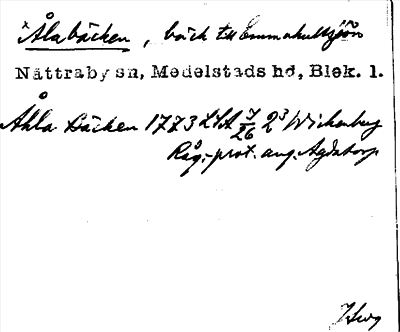 ˣÅlabäcken, bäck till Emmahultssjön
Nättraby sn, Medelstads hd, Blek. l.
Åhla Bäcken 1773 LSA J/26 2³ Wickenberg
Råg.-prot. ang. Agdatorp